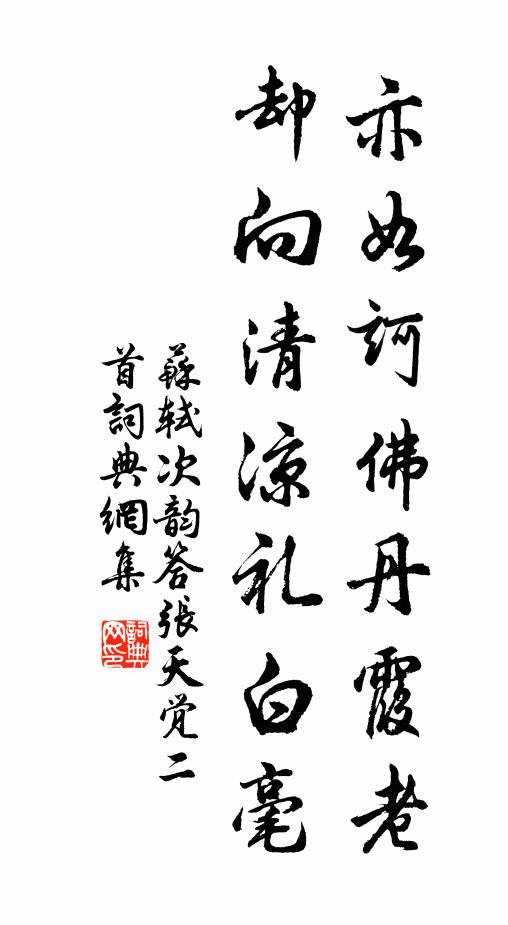 亦如訶佛丹霞老
却向清涼礼白毫
蘇轼次韵答張天觉二
首詞典網集
詞典
网印